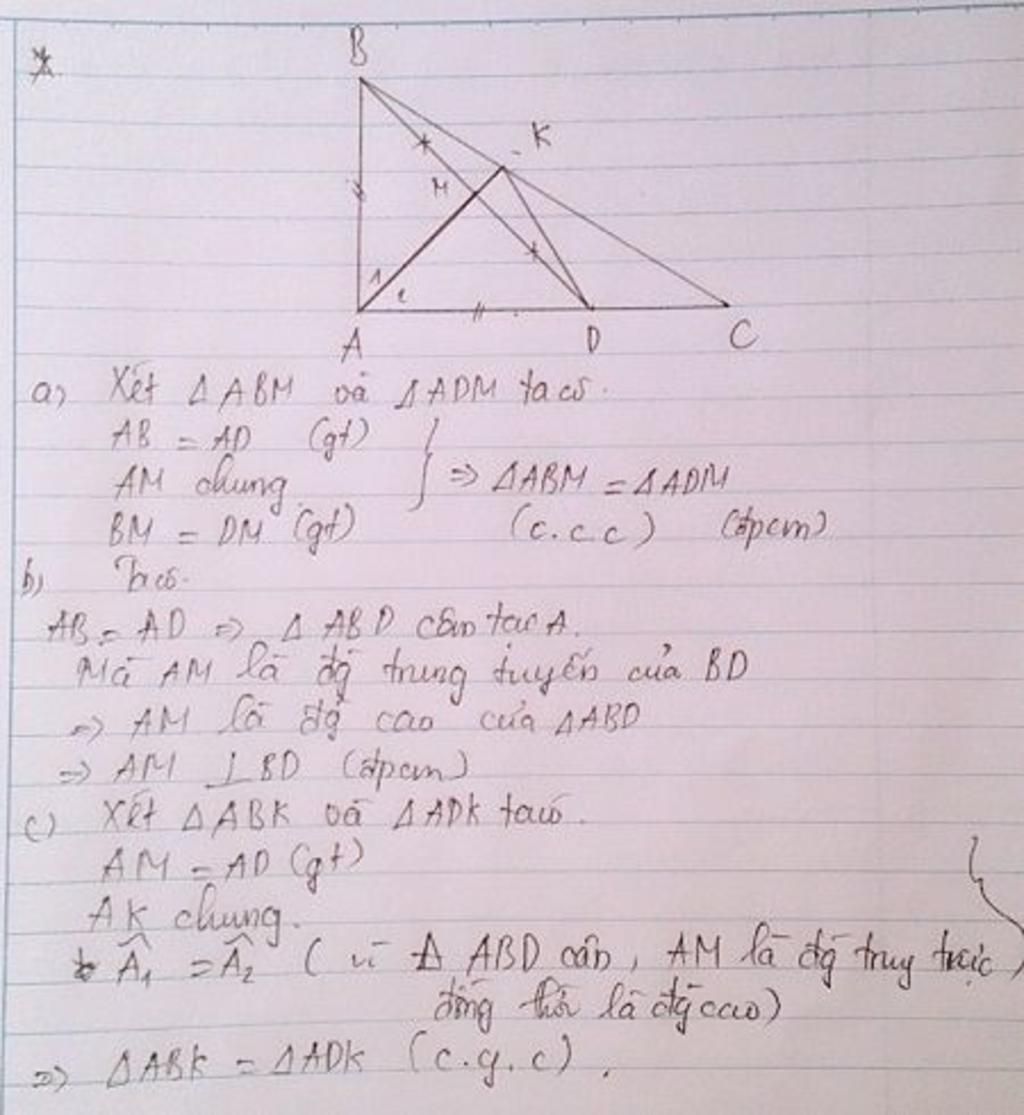 B
K
M
1
2
A D C
a) Xét Δ ABM và Δ ADM ta có.
AB = AD (gt)
AM chung
BM = DM (gt)
} => ΔABM = ΔADM
(c.c.c) (đpcm)
b) Ta có.
AB = AD => Δ ABD cân tại A.
Mà AM là đg trung tuyến của BD
=> AM là đg cao của ΔABD
=> AM ⊥ BD (đpcm)
c) Xét Δ ABK và Δ ADK ta có.
AM = AD (gt)
AK chung.
Â1 = Â2 (vì Δ ABD cân, AM là đg trung trực
đồng thời là đg cao)
=> ΔABK = ΔADK (c.g.c).